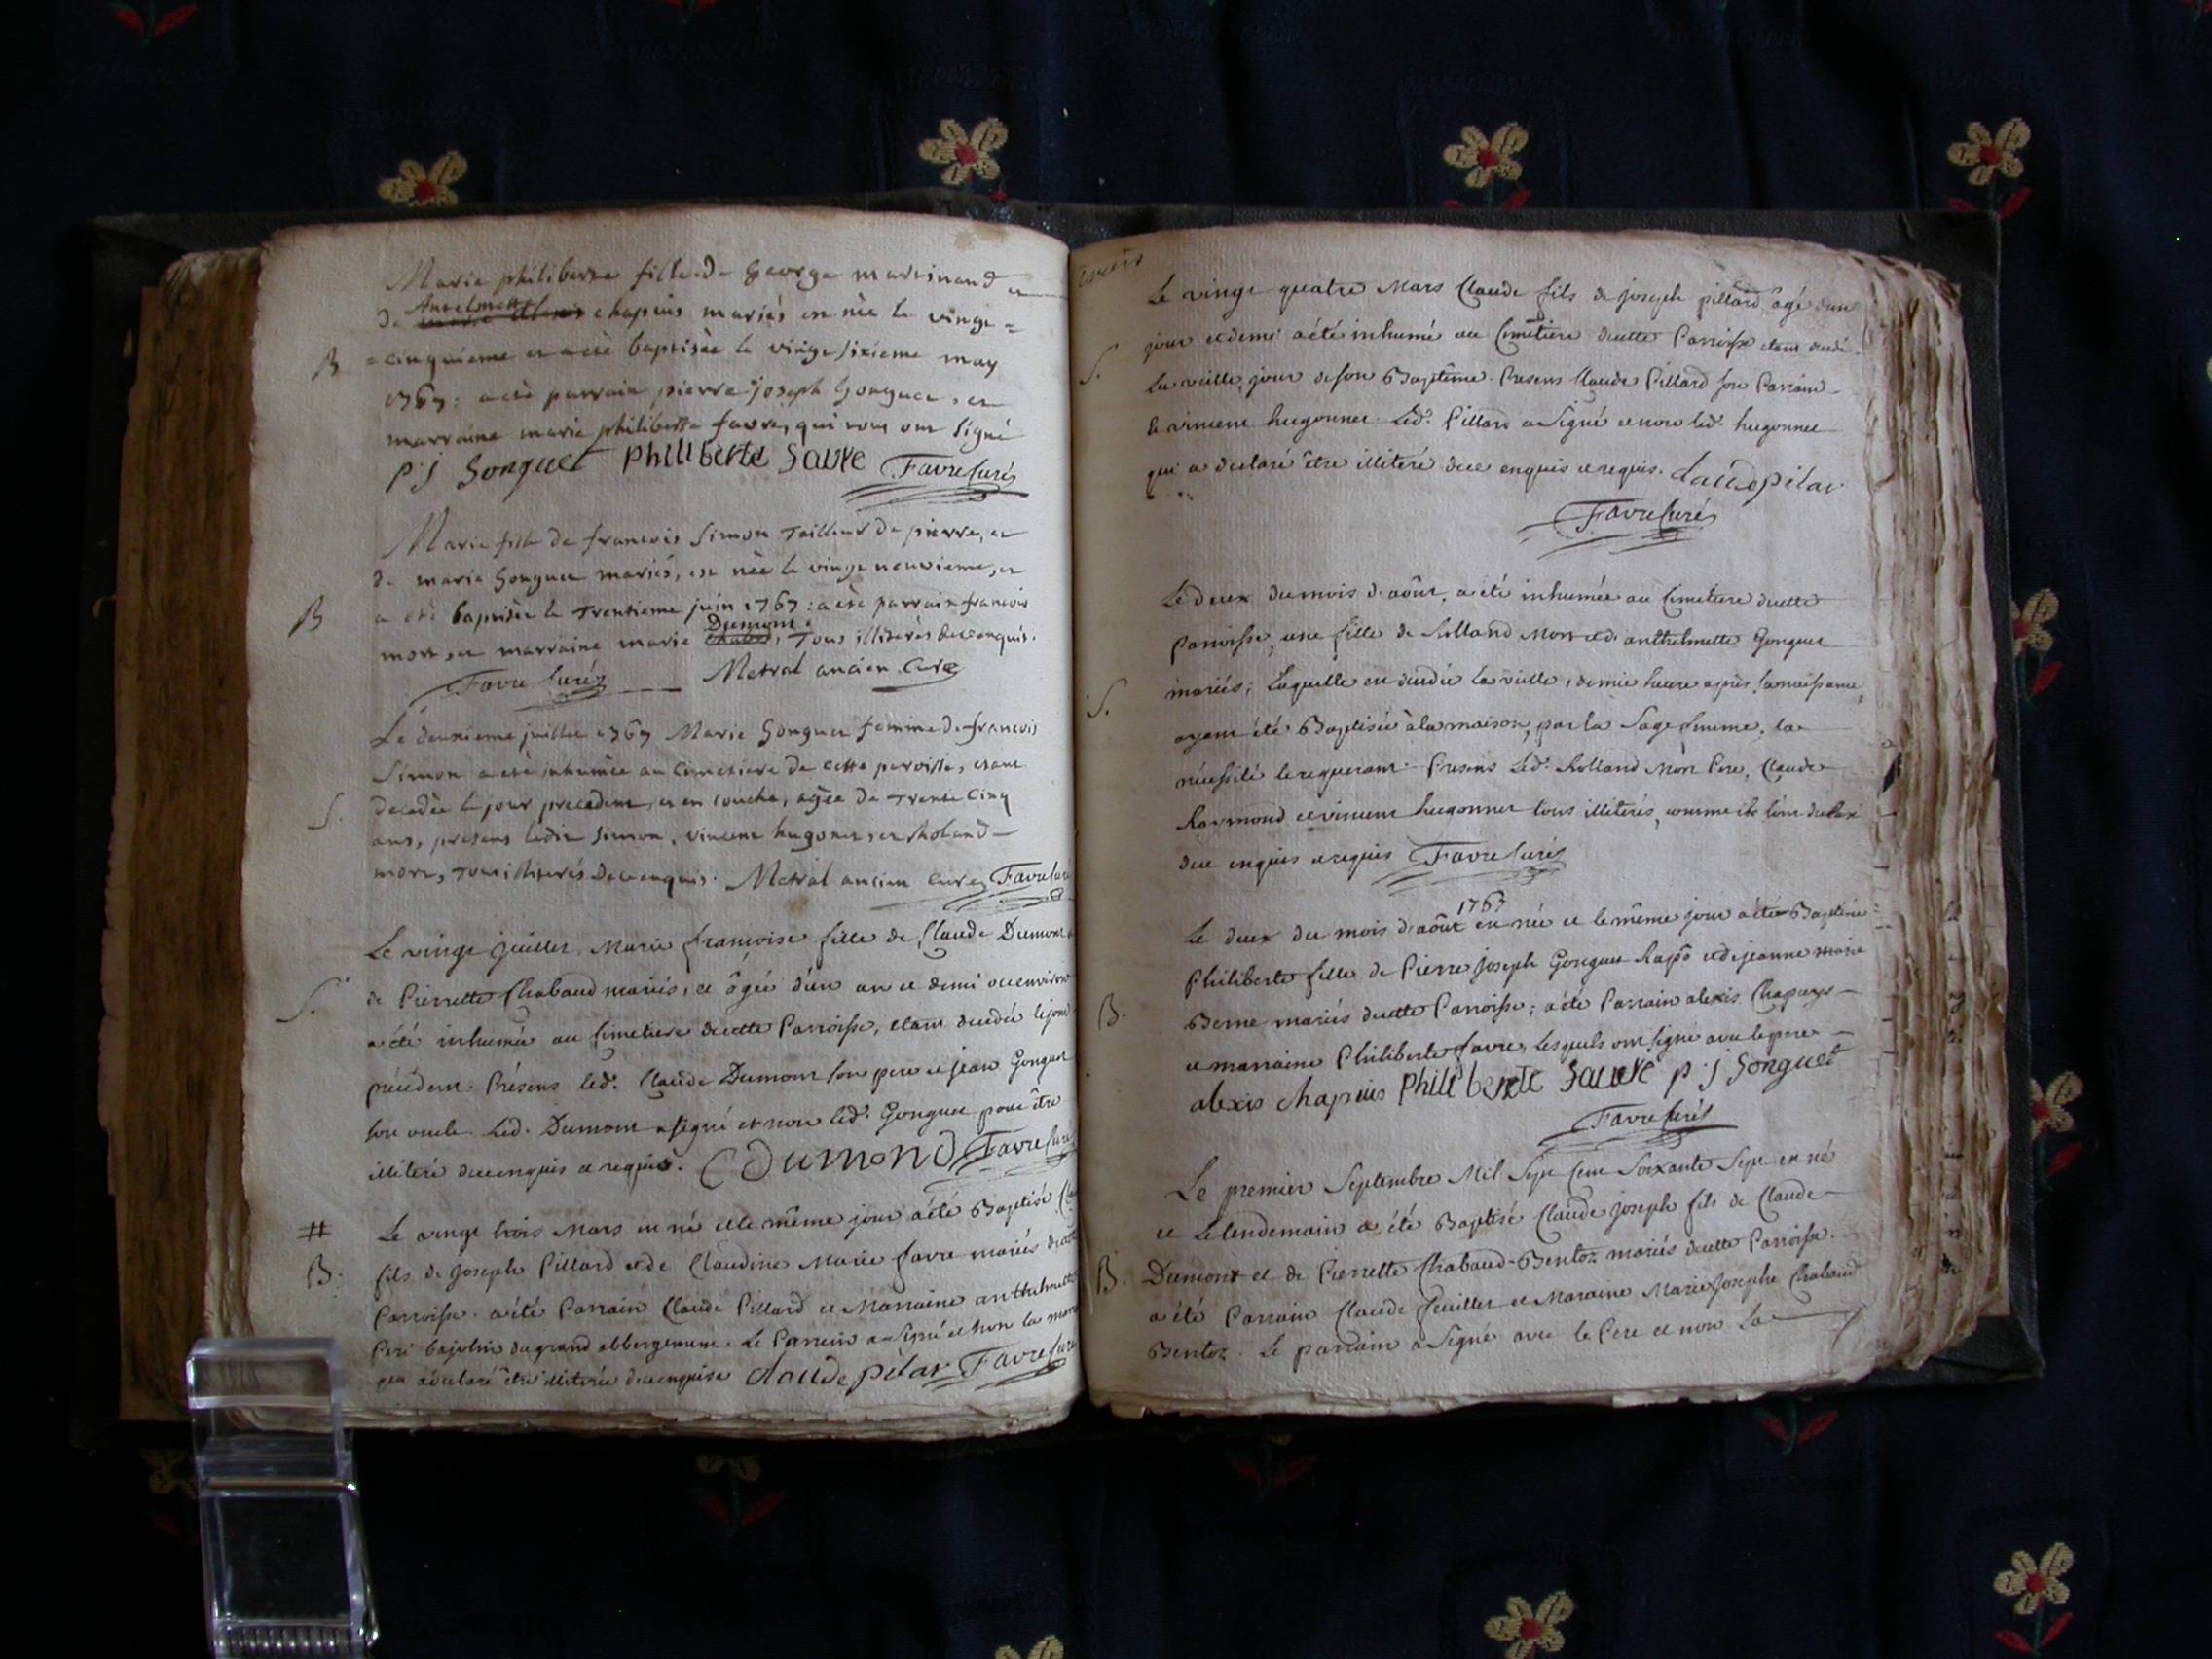 Marie philiberte fille de George martinand et
de Anselmette chapuis mariés est née le vingt =
B = cinquieme et a eté baptisée le vingt sixieme may
1767: a eté parrain pierre joseph Gonguet, et
marraine marie philiberte favre, qui tous ont signé
p·j Gonguet philiberte favre Favre Curé
Marie fille de francois Simon Tailleur de pierre, et
de marie Gonguet mariés, est née le vingt neuvieme, et
B a eté baptisée le trentieme juin 1767: a eté parrain francois
mort, et marraine marie Dumont, Tous illiterés de ce enquis.
Favre Curé Metral ancien Curé
Le deuxieme juillet 1767 Marie Gonguet femme de francois
Simon a eté inhumée au Cimetiere de cette paroisse, etant
S. decedée le jour precedent, et en couche, agée de trente Cinq
ans, presens ledit Simon, vincent hugonet, et Roland
mort, tous illiterés de ce enquis. Metral ancien curé Favre Curé
Le vingt juillet, Marie françoise fille de Claude Dumont
S. de Pierrette Chabaud mariés, et âgée d'un an et demi ou environ
a été inhumée au Cimetiere de cette Parroisse, etant decedée le jour
précédent. Présens led. Claude Dumont son pere et jean Gonguet
son oncle. Led. Dumont a signé et non led. Gonguet pour être
illiteré de ce enquis et requis. Dumond Favre Curé
# Le vingt trois Mars est né et le même jour a été Baptisé
B. fils de Joseph Pillard et de Claudine Marie favre mariés de cette
Parroisse. a été Parrain Claude Pillard et Marraine anthelmette
du grand abbergement. Le Parrein a signé et non la
qui a declaré être illiterée de ce enquise Claude pilar Favre Curé
Le vingt quatre Mars Claude fils de joseph pillard âgé d'un
jour et demi a été inhumé au Cimetiere de cette Parroisse etant decedé
S. la veille, jour de son Baptême. Presens Claude Pillard son Parrain
et vincent hugonnet. Led. Pillard a signé et non led. hugonnet
qui a declaré être illiteré de ce enquis et requis. Claude pilar
Favre Curé
Le deux du mois d'août, a été inhumée au Cimetiere de cette
Parroisse, une fille de Rolland Mort et d'anthelmette Gonguet
S. mariés; Laquelle est decedée la veille, demie heure après sa naissance,
ayant été Baptisée à la maison, par la Sage femme, la
nécessité le requerant. Presens Led. Rolland Mort Pere, Claude
Raymond et vincent hugonnet tous illiterés, comme ils l'ont declaré
de ce enquis et requis Favre Curé
1767
Le deux du mois d'août est née et le même jour a été Baptisée
Philiberte fille de Pierre Joseph Gonguet et de jeanne marie
B. Berne mariés de cette Parroisse; a été Parrain alexis Chapuys
et marraine Philiberte favre, Lesquels ont signé avec le pere
alexis chapuis philiberte favre p·j Gonguet
Favre Curé
Le premier Septembre Mil Sept Cent Soixante Sept est né
et Le lendemain a été Baptisé Claude joseph fils de Claude
B. Dumont et de Pierrette Chabaud-Bentoz mariés de cette Parroisse.
a été Parrain Claude feuillet et Maraine Marie Josephe Chabaud
Bentoz. Le parrain a Signé avec le Pere et non La